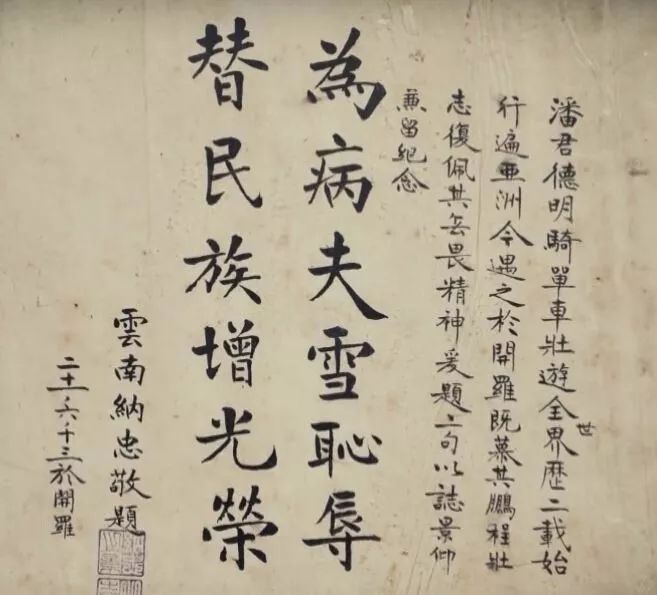 潘君德明騎單車壯遊全世界歷二載始
行遍亞洲今遇之於開羅既慕其鵬程壯
志復佩其無畏精神爰題二句以誌景仰
兼留紀念
為病夫雪恥辱
替民族增光榮
雲南納忠敬題
二十一·六·十三於開羅